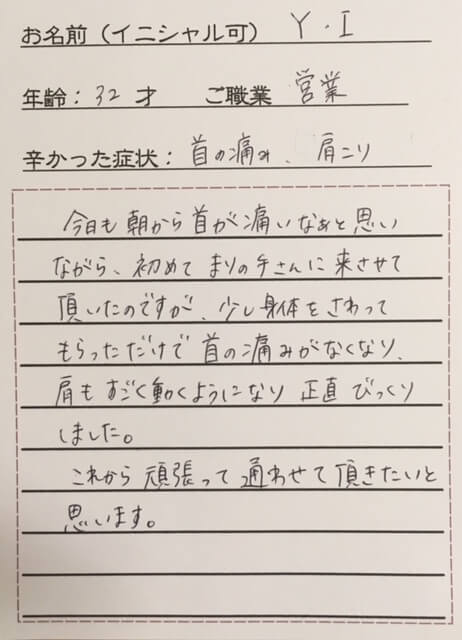 お名前（イニシャル可） Y・I
年齢：32 才 ご職業 営業
辛かった症状： 首の痛み、肩こり
今日も朝から首が痛いなぁと思い
ながら、初めて まりの手さんに来させて
頂いたのですが、少し身体をさわって
もらっただけで首の痛みがなくなり、
肩もすごく動くようになり正直びっくり
しました。
これから頑張って通わせて頂きたいと
思います。